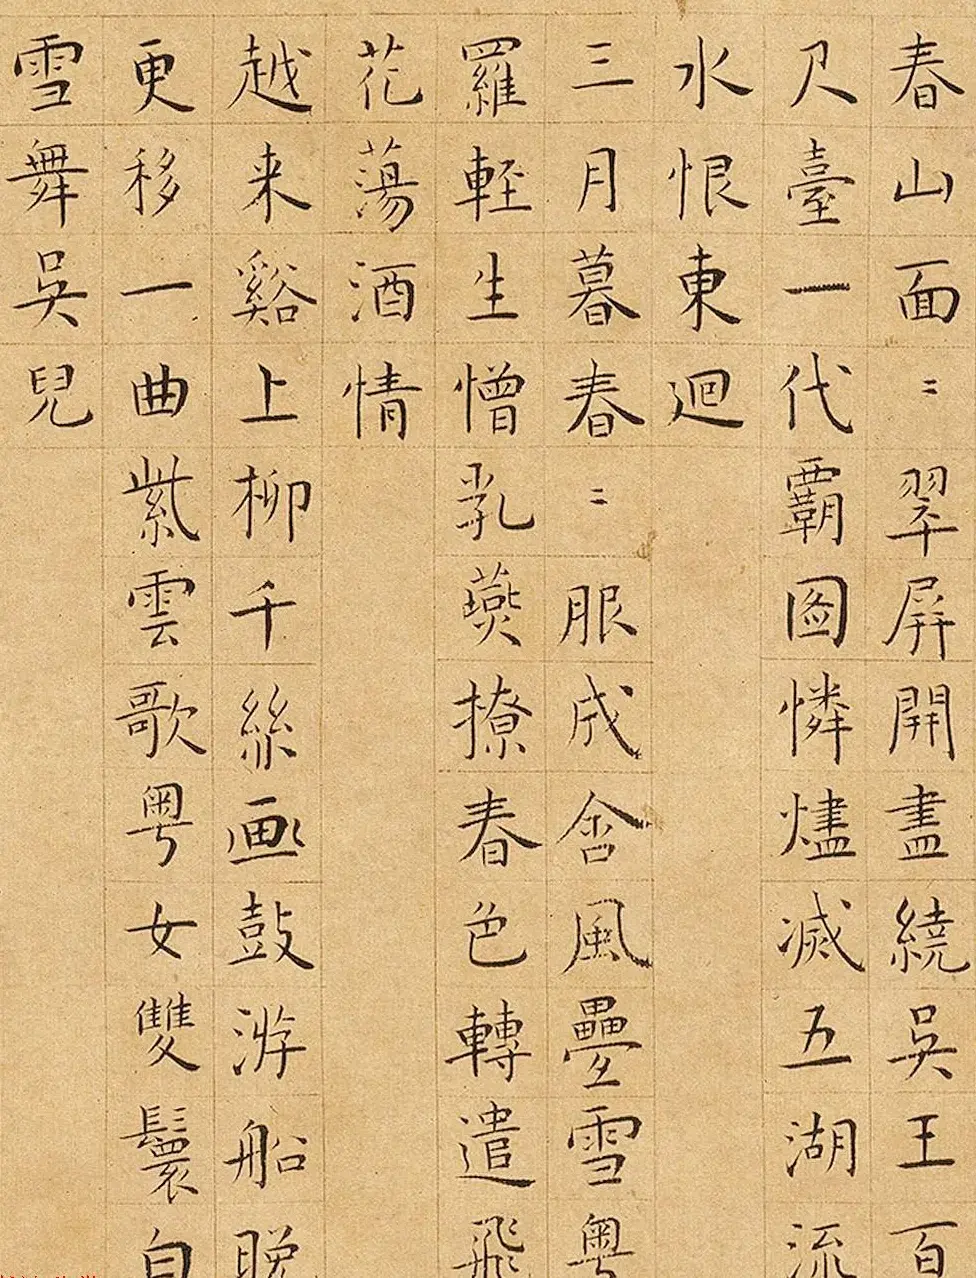 春山面〻翠屏開盡繞吳王百
尺臺一代霸圖憐燼滅五湖流
水恨東迴
三月暮春〻服成含風疊雪粵
羅輕生憎乳燕撩春色轉遣飛
花蕩酒情
越来谿上柳千絲画鼓游船晚
更移一曲紫雲歌粵女雙鬟自
雪舞吳兒